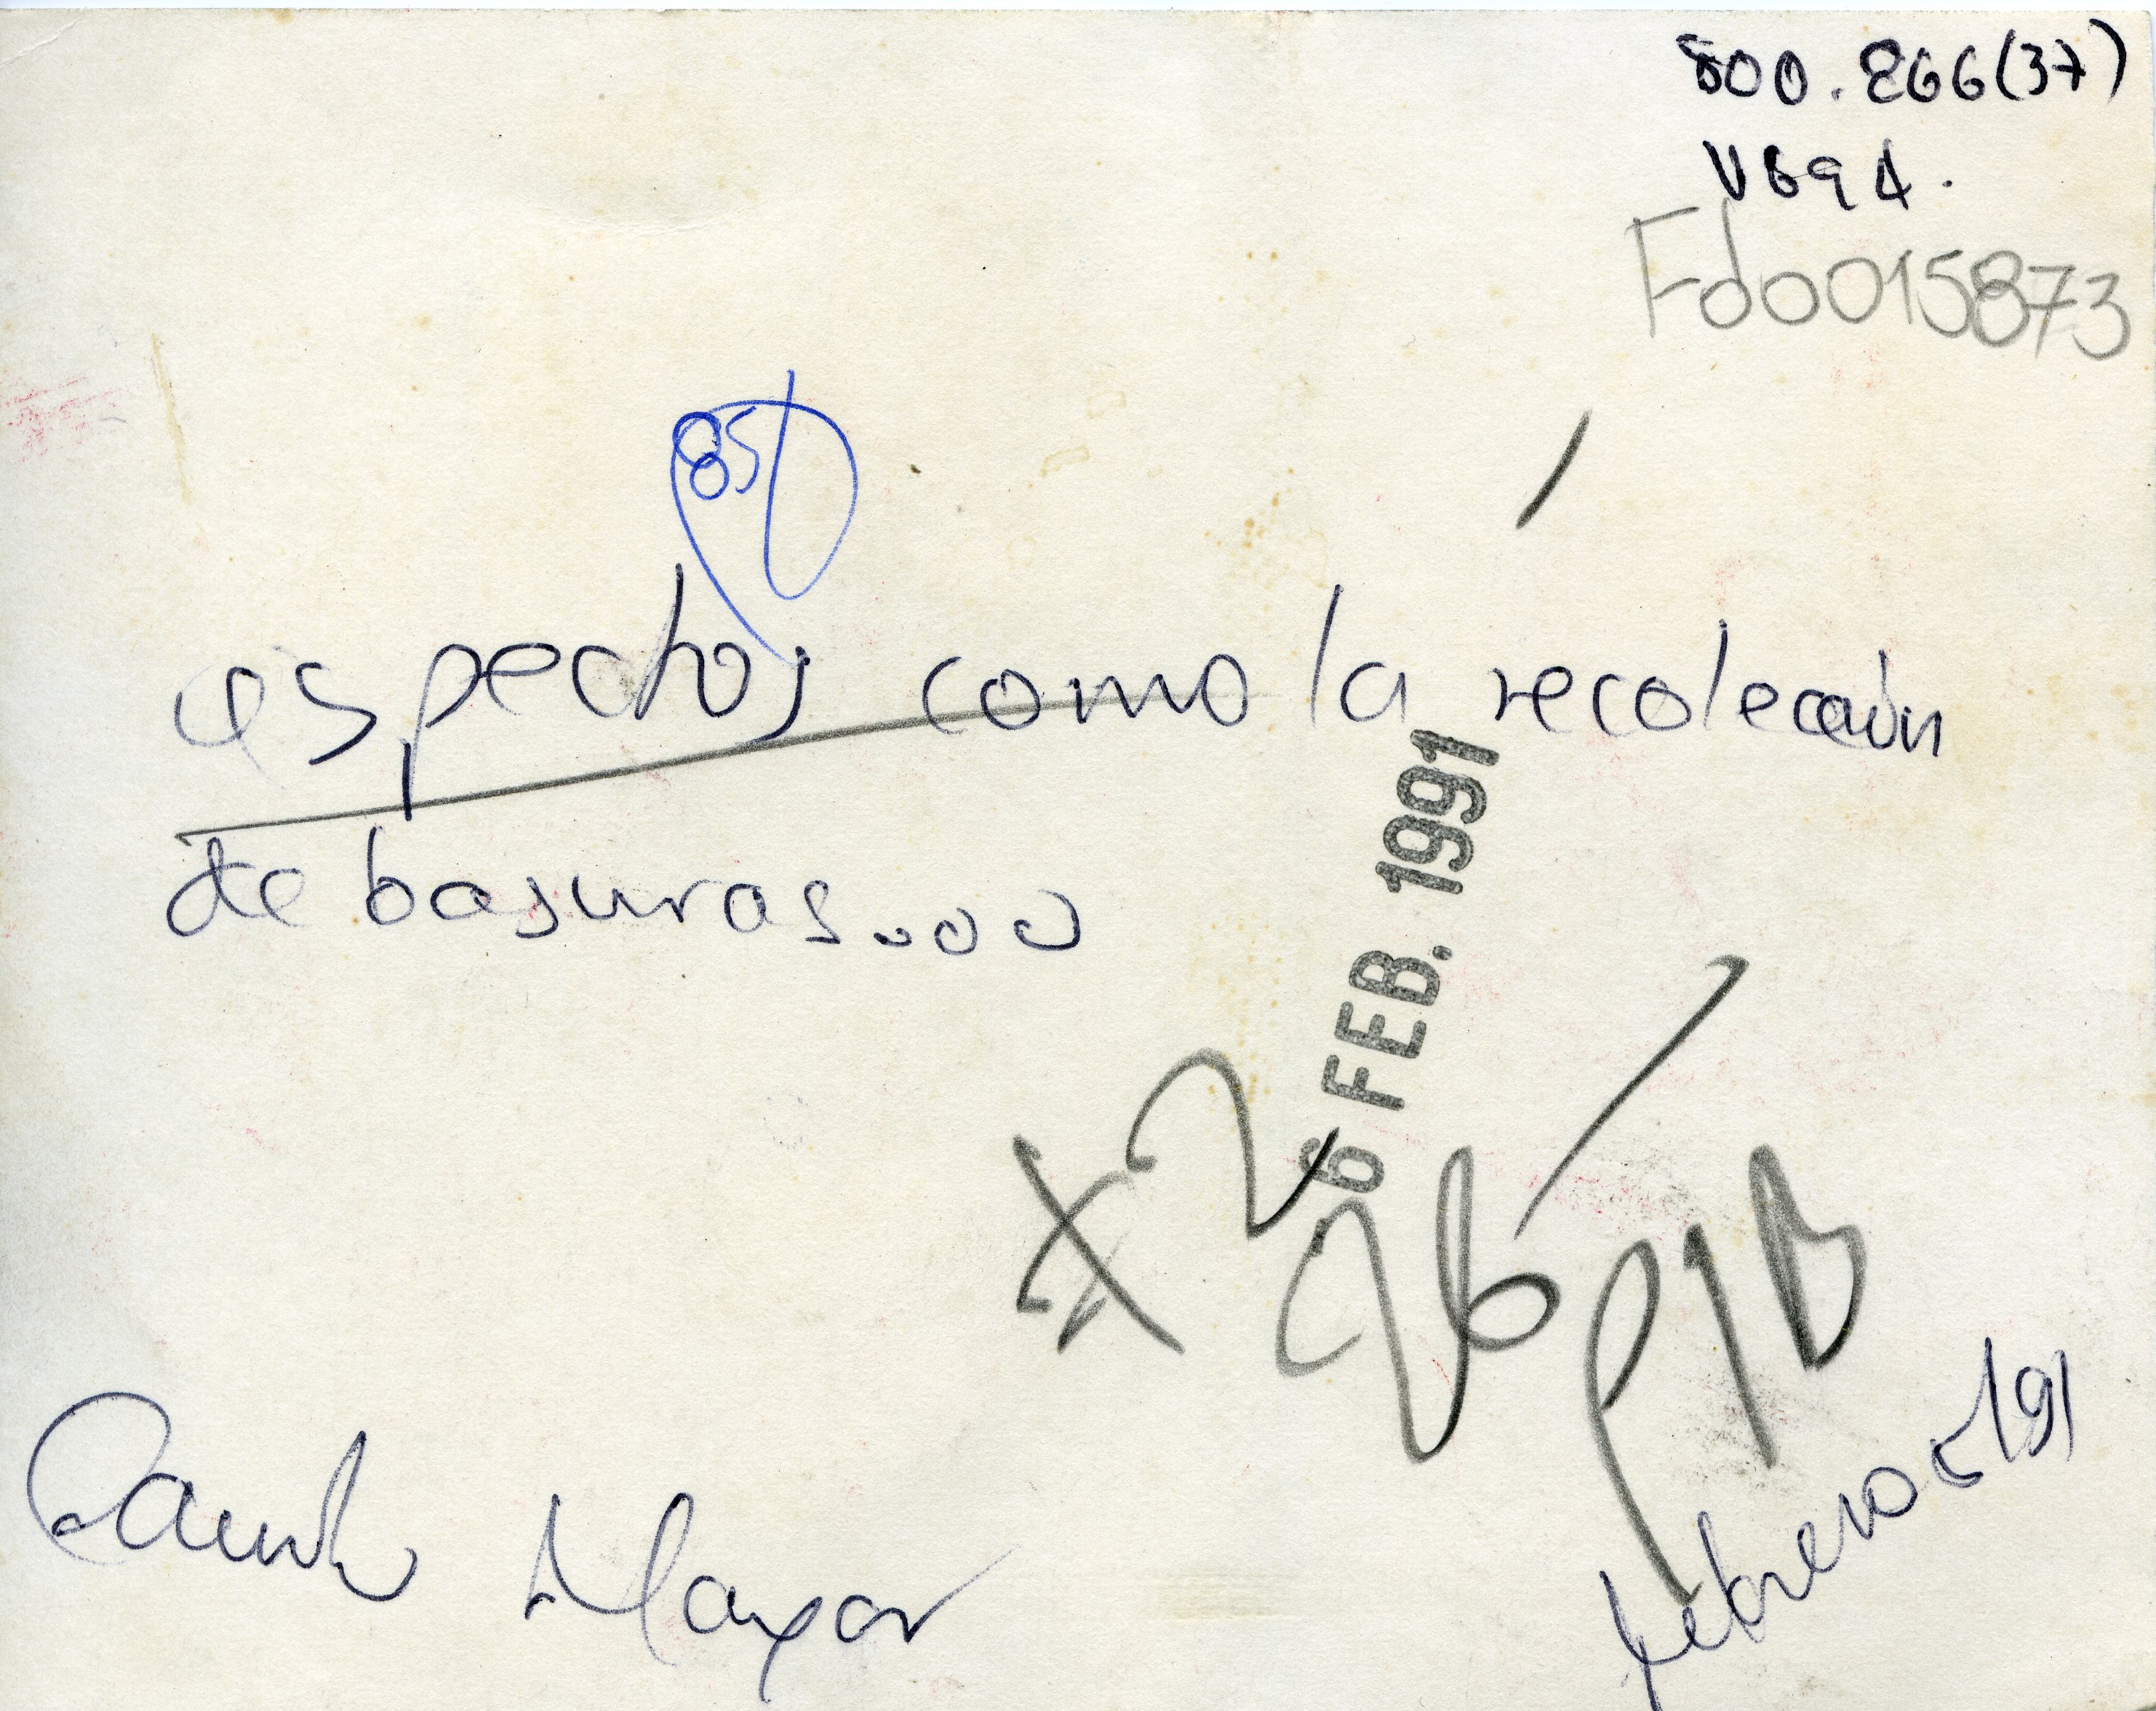 800.866(37)
V694.
Fdo015873
85
aspectos como la recolección
de basuras...
6 FEB. 1991
x2
26
P1B
Mayor
febrero 5/91